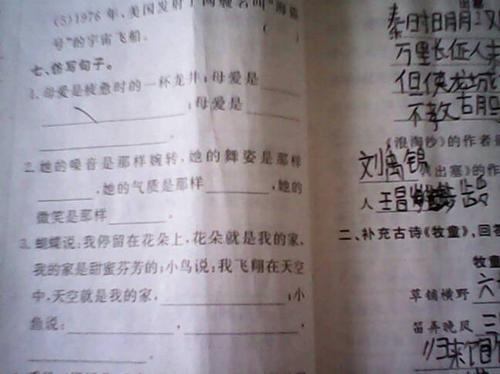 (5)1976年,美国发射了两艘名叫“海盗
号”的宇宙飞船。 ( )
七、仿写句子。
1.母爱是疲惫时的一杯龙井;母爱是
;母爱是
。
2.她的嗓音是那样婉转,她的舞姿是那样
,她的气质是那样 ,她的
微笑是那样 。
3.蝴蝶说:我停留在花朵上,花朵就是我的家,
我的家是甜蜜芬芳的;小鸟说:我飞翔在天空
中,天空就是我的家, ;小
鱼说: , ,
。
秦时明月
万里长征人
但使龙城
不教
《浪淘沙》的作者
刘禹锡
《出塞》的作
人王昌龄
二、补充古诗《牧童》,回答
牧童
草铺横野 六
笛弄晚风 三
归来饱